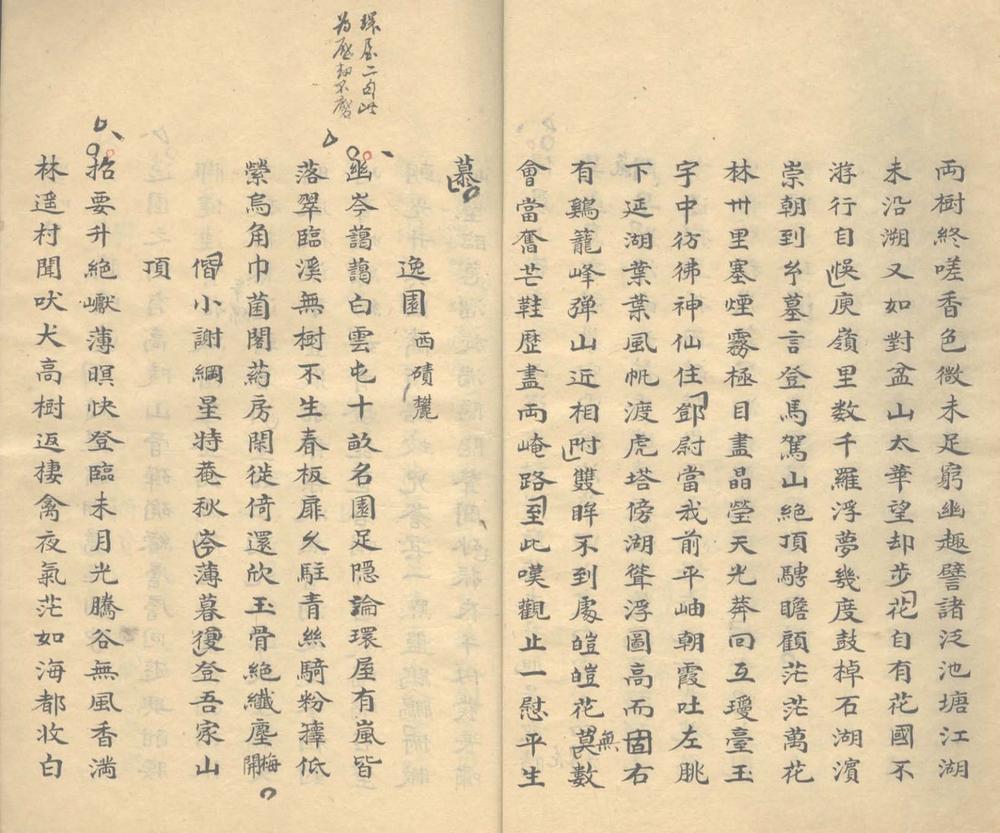 兩樹終嗟香色微未足窮幽趣譬諸泛池塘江湖
未沿溯又如對盆山太華望却步花自有花國不
游行自悞庾嶺里数千羅浮夢幾度鼓棹石湖濱
崇朝到乡墓言登馬駕山絕頂騁瞻顧茫茫萬花
林卅里塞煙霧極目盡晶瑩天光莽回互瓊臺玉
宇中彷彿神仙住鄧尉當我前平岫朝霞吐左眺
下延湖葉葉風帆渡虎塔傍湖聳浮圖高而固右
有鷄籠峰弹山近相附雙眸不到處皚皚花莫數
無
會當奮芒鞋歷盡两崦路至此嘆觀止一慰平生
慕
逸園西磧麓
環屋二句此
為歷劫不磨
幽岑藹藹白雲屯十畝名園足隱論環屋有嵐皆
落翠臨溪無樹不生春板扉久駐青絲騎粉籜低
縈烏角巾菌閣葯房閑徙倚還欣玉骨絕纖塵梅開
偕小謝綱星特菴秋岑薄暮獲登吾家山
頂
招要升絕巘薄暝快登臨未月光騰谷無風香滿
林遥村聞吠犬高樹返棲禽夜氣茫如海都妆白